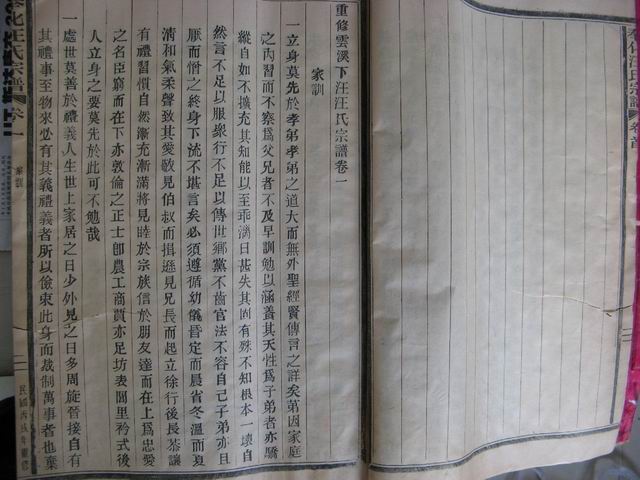 重修雲溪下汪汪氏宗譜卷一
家訓
一立身莫先於孝弟孝弟之道大而無外聖經賢傳言之詳矣第因家庭
之內習而不察為父兄者不及早訓勉以涵養其天性為子弟者亦驕
縱自如不擴充其知能以至乖淌日甚失其固有殊不知根本一壞自
然言不足以服衆行不足以傳世鄉黨不齒官法不容自己子弟亦且
厭而憎之終身下流不堪言矣必須遵循幼儀昏定而晨省冬溫而夏
淸和氣柔聲致其愛敬見伯叔而揖遜見兄長而起立徐行後長茶讓
有禮習慣自然漸充漸滿將見睦於宗族信於朋友達而在上爲忠愛
之名臣窮而在下亦敦倫之正士卽農工商賈亦足坊表閭里矜式後
人立身之要莫先於此可不勉哉
一處世莫善於禮義人生世上家居之日少外見之日多周旋晉接自有
其禮事至物來必有其義禮義者所以儉束此身而裁制萬事者也棄
汪氏宗譜
卷一
家訓
一
民國丙戌年重修
汪氏宗譜
卷首